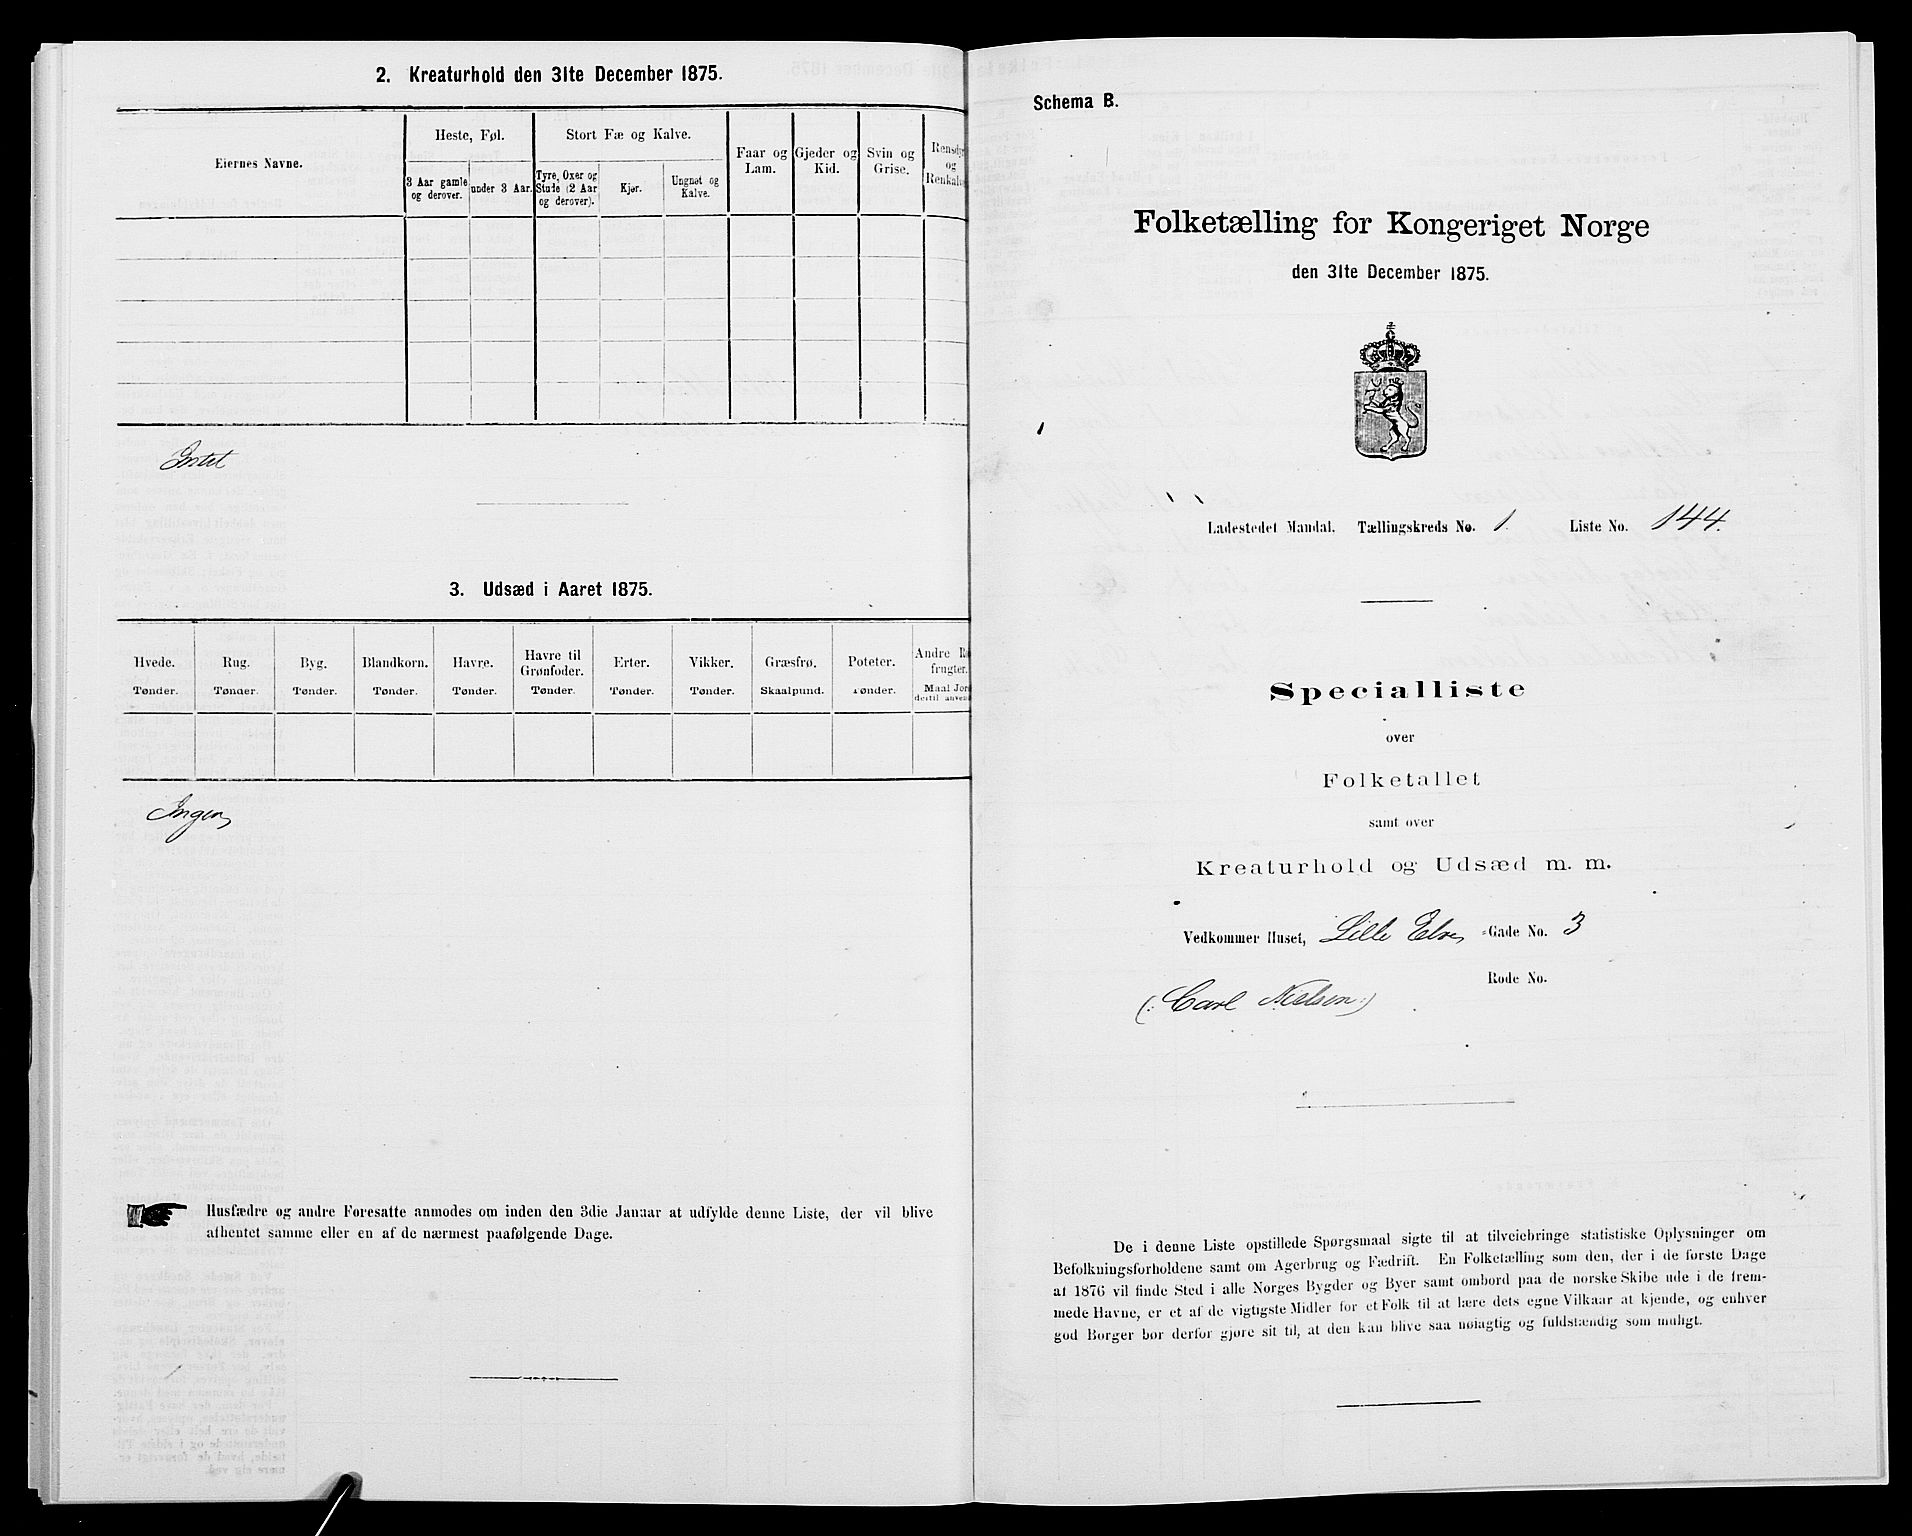 2. Kreaturhold den 31te December 1875.
Eiernes Navne.
Heste, Føl.
3 Aar gamle og derover.
under 3 Aar.
Stort Fæ og Kalve.
Tyre, Oxer og Stude (2 Aar og derover).
Kjør.
Ungnøt og Kalve.
Faar og Lam.
Gjeder og Kid.
Svin og Grise.
Rensdyr og Renkalve
Intet
3. Udsæd i Aaret 1875.
Hvede. Tønder.
Rug. Tønder.
Byg. Tønder.
Blandkorn. Tønder.
Havre. Tønder.
Havre til Grønfoder. Tønder.
Erter. Tønder.
Vikker. Tønder.
Græsfrø. Skaalpund.
Poteter. Tønder.
Andre Ro frugter. Maal Jor dertil anven
Ingen
Husfædre og andre Foresatte anmodes om inden den 3die Januar at udfylde denne Liste, der vil blive
afhentet samme eller en af de nærmest paafølgende Dage.
Schema B.
Folketælling for Kongeriget Norge
den 31te December 1875.
Ladestedet Mandal. Tællingskreds No. 1. Liste No. 144.
Specialliste
over
Folketallet
samt over
Kreaturhold og Udsæd m. m.
Vedkommer Huset, Lille Elve =Gade No. 3
Rode No.
(: Carl Nielsen :)
De i denne Liste opstillede Spørgsmaal sigte til at tilveiebringe statistiske Oplysninger om
Befolkningsforholdene samt om Agerbrug og Fædrift. En Folketælling som den, der i de første Dage
af 1876 vil finde Sted i alle Norges Bygder og Byer samt ombord paa de norske Skibe ude i de frem-
mede Havne, er et af de vigtigste Midler for et Folk til at lære dets egne Vilkaar at kjende, og enhver
god Borger bør derfor gjøre sit til, at den kan blive saa nøiagtig og fuldstændig som muligt.